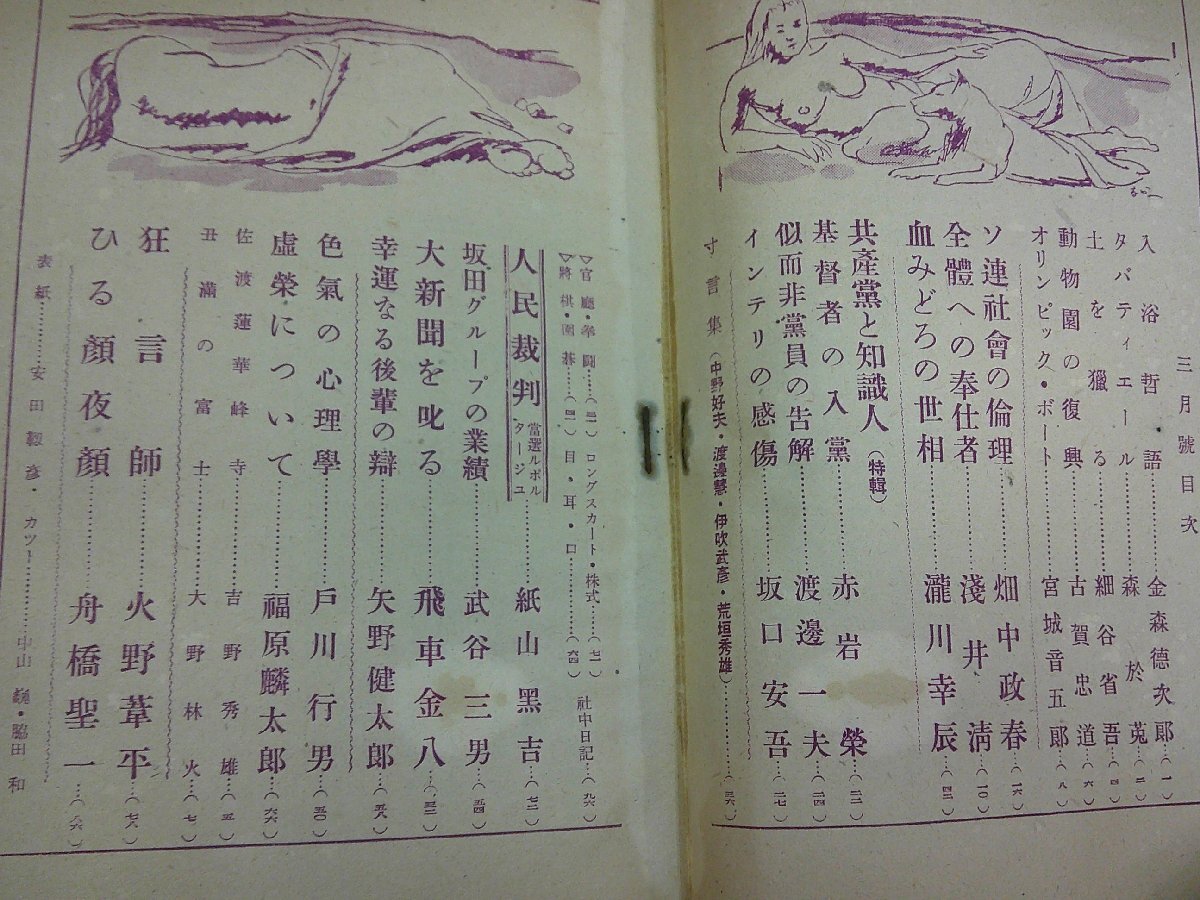 三月號目次
入浴哲語……金森德次郎…(一)
タバティエール……森於菟…(二)
土を獵る……細谷省吾…(四)
動物園の復興……古賀忠道…(六)
オリンピック・ボート……宮城音五郎…(八)
ソ連社會の倫理……畑中政春…(一六)
全體への奉仕者……淺井淸…(一〇)
血みどろの世相……瀧川幸辰…(四二)
共產黨と知識人(特輯)
基督者の入黨……赤岩榮…(二二)
似而非黨員の告解……渡邊一夫…(二四)
インテリの感傷……坂口安吾…(二七)
寸言集(中野好夫・渡邊慧・伊吹武彥・荒垣秀雄)……(三六)
▽官廳・拳鬪…(三一)ロングスカート・株式……(七一)
▽將棋・圍碁……(四一)目・耳・口……(六四)
社中日記…(九六)
人民裁判 當選ルポルタージユ……紙山黑吉…(七二)
坂田グループの業績……武谷三男…(五四)
大新聞を叱る……飛車金八…(三二)
幸運なる後輩の辯……矢野健太郎…(五八)
色氣の心理學……戶川行男…(五〇)
虛榮について……福原麟太郎…(六六)
佐渡蓮華峰寺……吉野秀雄…(五)
丑滿の富士……大野林火…(七)
狂言師……火野葦平…(七八)
ひる顏夜顏……舟橋聖一…(八六)
表紙……安田靫彥・カツ—……中山巍・脇田和